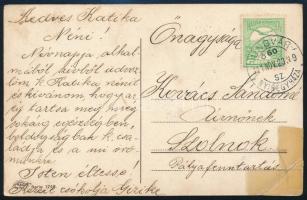 Kedves Katika
Néni!
Névnapja alkal-
mából szivből üdvöz-
löm k. Katika nénit
és kívánom, hogy az
Ég tartsa meg hosszú
egészségben,
boldogságban k. csa-
ládja és a mi örö-
münkre.
Isten éltesse!
Kezét csókolja Gizike
Önagysága
Kovács Sándorné
Úrnőnek
Szolnok
Pályafenntartás